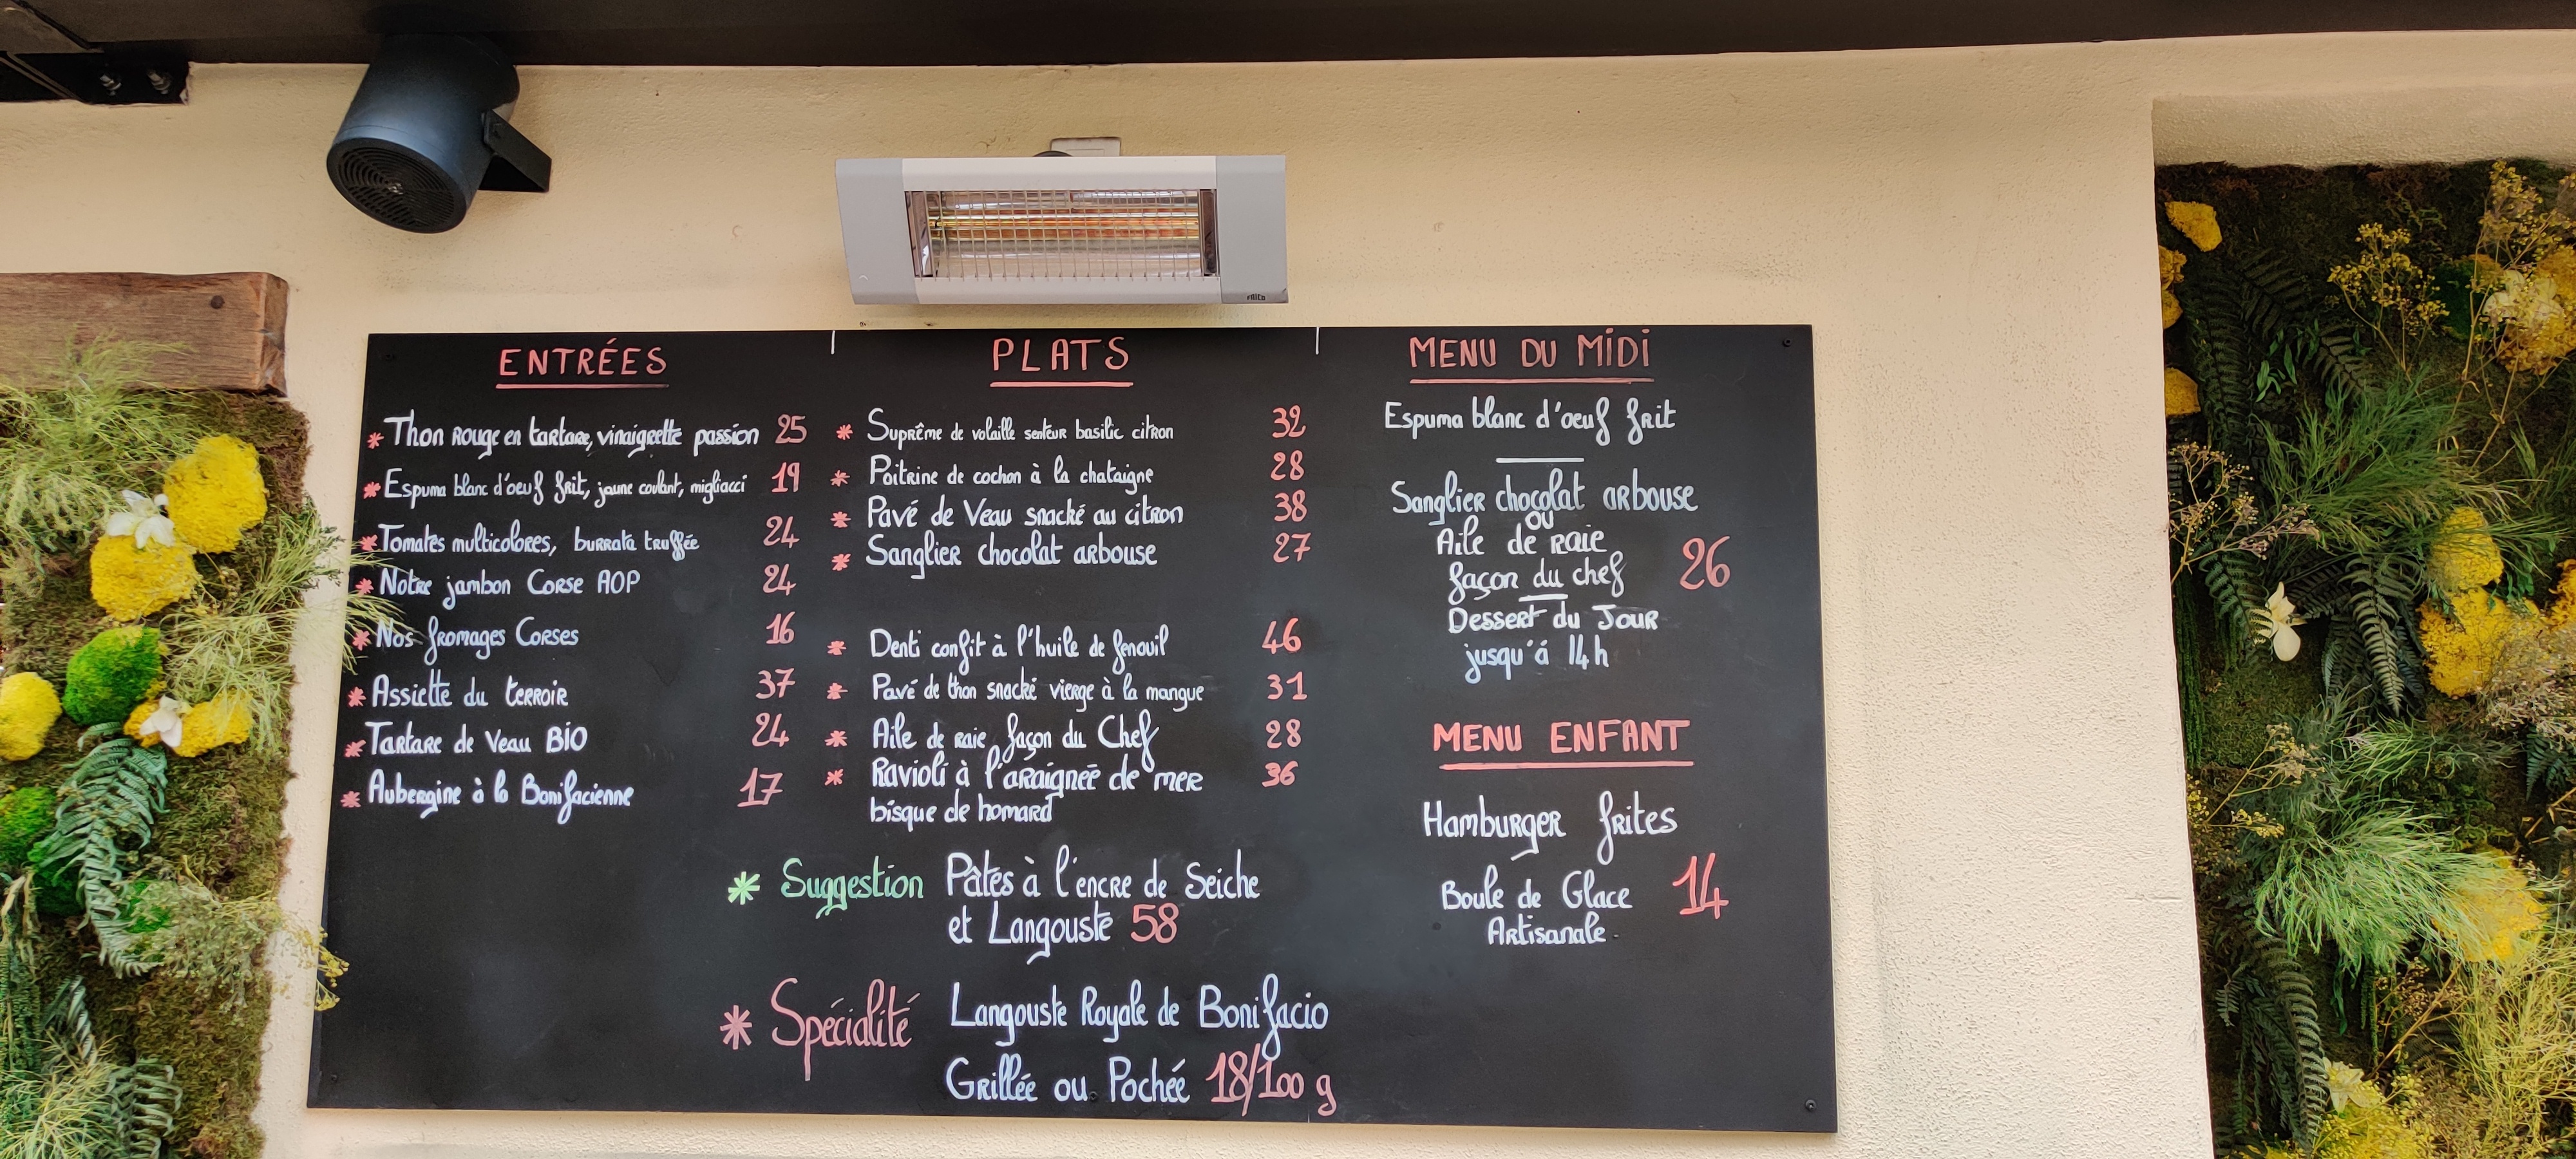 FRICO
ENTRÉES
* Thon Rouge en tartare, vinaigrette passion 25
* Espuma blanc d'oeuf frit, jaune coulant, migliacci 19
* Tomates multicolores, burrata truffée 24
* Notre jambon Corse AOP 24
* Nos fromages Corses 16
* Assiette du terroir 37
* Tartare de Veau BIO 24
* Aubergine à la Bonifacienne 17
PLATS
* Suprême de volaille senteur basilic citron 32
* Poitrine de cochon à la chataigne 28
* Pavé de Veau snacké au citron 38
* Sanglier chocolat arbouse 27
* Denti confit à l'huile de fenouil 46
* Pavé de thon snacké vierge à la mangue 31
* Aile de raie façon du Chef 28
* Ravioli à l'araigneé de mer 36
bisque de homard
* Suggestion Pâtes à l'encre de Seiche
et Langouste 58
* Spécialité Langouste Royale de Bonifacio
Grillée ou Pochée 18/100 g
MENU DU MIDI
Espuma blanc d'oeuf frit
Sanglier chocolat arbouse
ou
Aile de raie
façon du chef 26
Dessert du Jour
jusqu'á 14h
MENU ENFANT
Hamburger frites
Boule de Glace 14
Artisanale